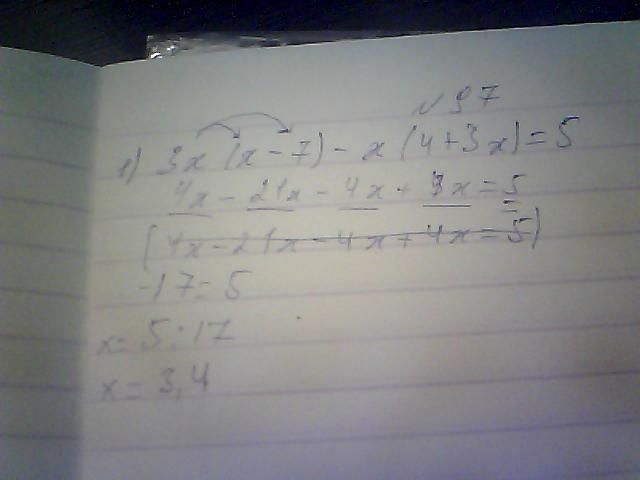 № 97
1) 3x (x - 7) - x (4 + 3x) = 5
4x - 21x - 4x + 4x = 5
(4x - 21x - 4x + 4x = 5)
-17 = 5
x = 5 : 17
x = 3,4